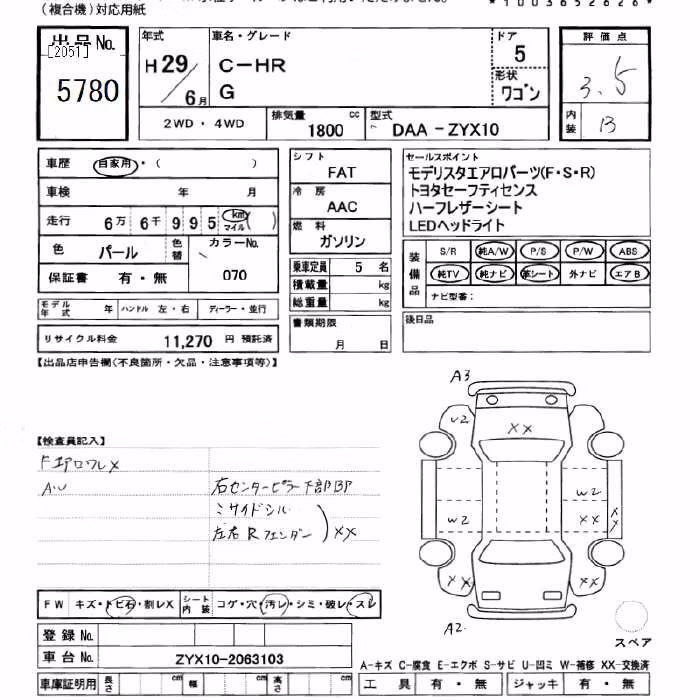 (複合機)対応用紙
*1003652626*
出品No.
[2051]
5780
年式
H 29/6月
車名・グレード
C-HR
G
ドア
5
形状
ワゴン
評価点
3.5
内装
B
2WD・4WD
排気量
1800 cc
型式
DAA-ZYX10
車歴 自家用・( )
車検 年 月
走行 6万 6千 9 9 5 km マイル ( )
色 パール 色替
カラーNo.
070
保証書 有・無
モデル年式 年 ハンドル 左・右 ディーラー・並行
リサイクル料金 11,270 円 預託済
シフト
FAT
冷房
AAC
燃料
ガソリン
乗車定員 5 名
積載量 kg
総重量 kg
書類期限
月 日
セールスポイント
モデリスタエアロパーツ(F・S・R)
トヨタセーフティセンス
ハーフレザーシート
LEDヘッドライト
装備品
S/R 純A/W P/S P/W ABS
純TV 純ナビ 革シート 外ナビ エアB
ナビ型番:
後日品
【出品店申告欄(不良箇所・欠品・注意事項等)】
【検査員記入】
FエアロワレX
A・U
右センターピラー下部BP
ミサイドシル
左右Rフェンダー
XX
A3
U2
XX
W2
W2
XX
XX
XX
XX
A2
スペア
FW キズ・トビ石・割レX
シート内装 コゲ・穴・汚レ・シミ・破レ・スレ
登録No.
車台No. ZYX10-2063103
車庫証明用 長さ cm 幅 cm 高さ cm
A-キズ C-腐食 E-エクボ S-サビ U-凹ミ W-補修 XX-交換済
工具 有・無 ジャッキ 有・無